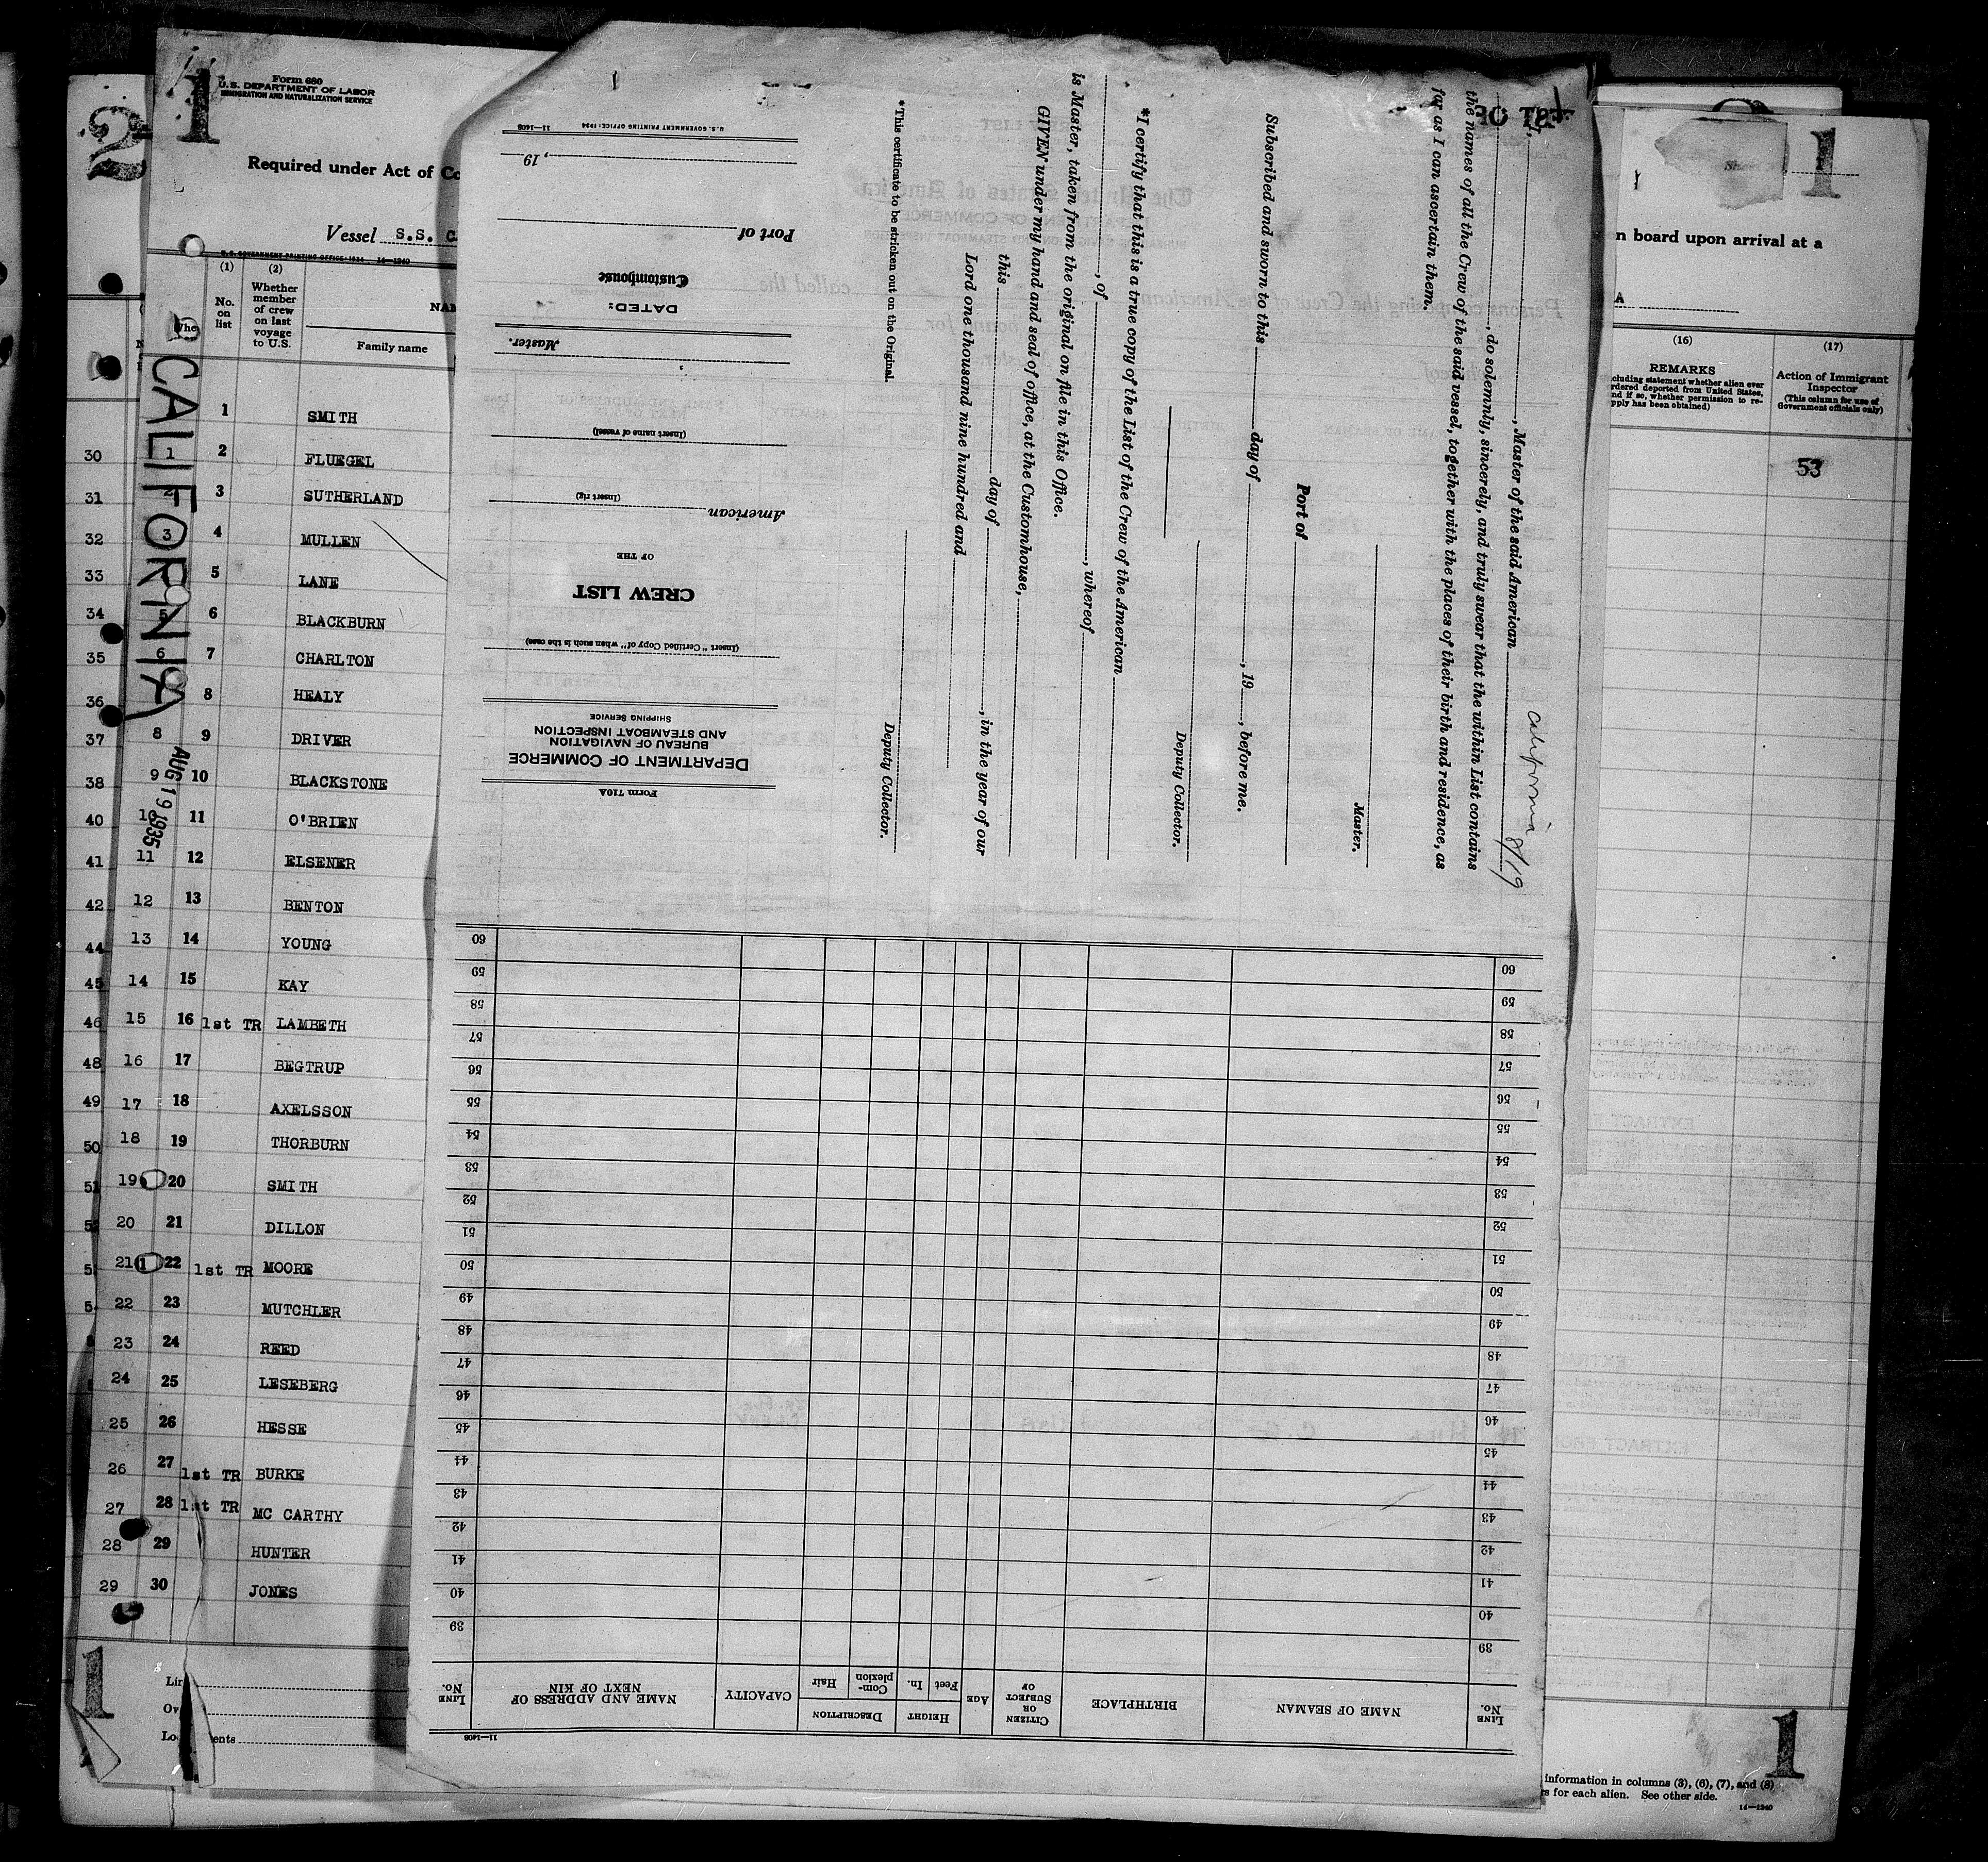 2
1
Form 680
U.S. DEPARTMENT OF LABOR
IMMIGRATION AND NATURALIZATION SERVICE
Required under Act of Co
Vessel S.S. C
U.S. GOVERNMENT PRINTING OFFICE: 1934 14—1240
(1) (2)
No. on list
Whether member of crew on last voyage to U.S.
NAM
Family name
Whe
CALIFORNIA
AUG 19 1935
1 SMITH
30 1 2 FLUEGEL
31 2 3 SUTHERLAND
32 3 4 MULLEN
33 5 LANE
34 5 6 BLACKBURN
35 6 7 CHARLTON
36 8 HEALY
37 8 9 DRIVER
38 9 10 BLACKSTONE
40 10 11 O'BRIEN
41 11 12 ELSENER
42 12 13 BENTON
44 13 14 YOUNG
45 14 15 KAY
46 15 16 1st TR LAMBETH
48 16 17 BEGTRUP
49 17 18 AXELSSON
50 18 19 THORBURN
51 19 20 SMITH
20 21 DILLON
21 22 1st TR MOORE
22 23 MUTCHLER
23 24 REED
24 25 LESEBERG
25 26 HESSE
26 27 1st TR BURKE
27 28 1st TR MC CARTHY
28 29 HUNTER
29 30 JONES
1
Lin
Ov
Lo ents
Form 710A
DEPARTMENT OF COMMERCE
BUREAU OF NAVIGATION
AND STEAMBOAT INSPECTION
SHIPPING SERVICE
(Insert "Certified Copy of" when such is the case)
CREW LIST
OF THE
American
(Insert rig)
(Insert name of vessel)
Master.
DATED:
Customhouse
Port of
, 19
U.S. GOVERNMENT PRINTING OFFICE: 1934 11—1408
, Master of the said American
California 8/19
, do solemnly, sincerely, and truly swear that the within List contains
the names of all the Crew of the said vessel, together with the places of their birth and residence, as
far as I can ascertain them.
Master.
Port of
Subscribed and sworn to this day of , 19 , before me.
Deputy Collector.
*I certify that this is a true copy of the List of the Crew of the American
, of , whereof
is Master, taken from the original on file in this Office.
GIVEN under my hand and seal of office, at the Customhouse,
this day of , in the year of our
Lord one thousand nine hundred and
Deputy Collector.
*This certificate to be stricken out on the Original.
11—1408
LINE No.
NAME OF SEAMAN
BIRTHPLACE
CITIZEN OR SUBJECT OF
AGE
HEIGHT
Feet In.
DESCRIPTION
Com-plexion Hair
CAPACITY
NAME AND ADDRESS OF NEXT OF KIN
LINE No.
39 39
40 40
41 41
42 42
43 43
44 44
45 45
46 46
47 47
48 48
49 49
50 50
51 51
52 52
53 53
54 54
55 55
56 56
57 57
58 58
59 59
60 60
1
n board upon arrival at a
A
(16) (17)
REMARKS
cluding statement whether alien ever
rdered deported from United States,
nd if so, whether permission to re-
pply has been obtained)
Action of Immigrant Inspector
(This column for use of Government officials only)
53
information in columns (3), (6), (7), and (8)
rs for each alien. See other side.
14—1240
1